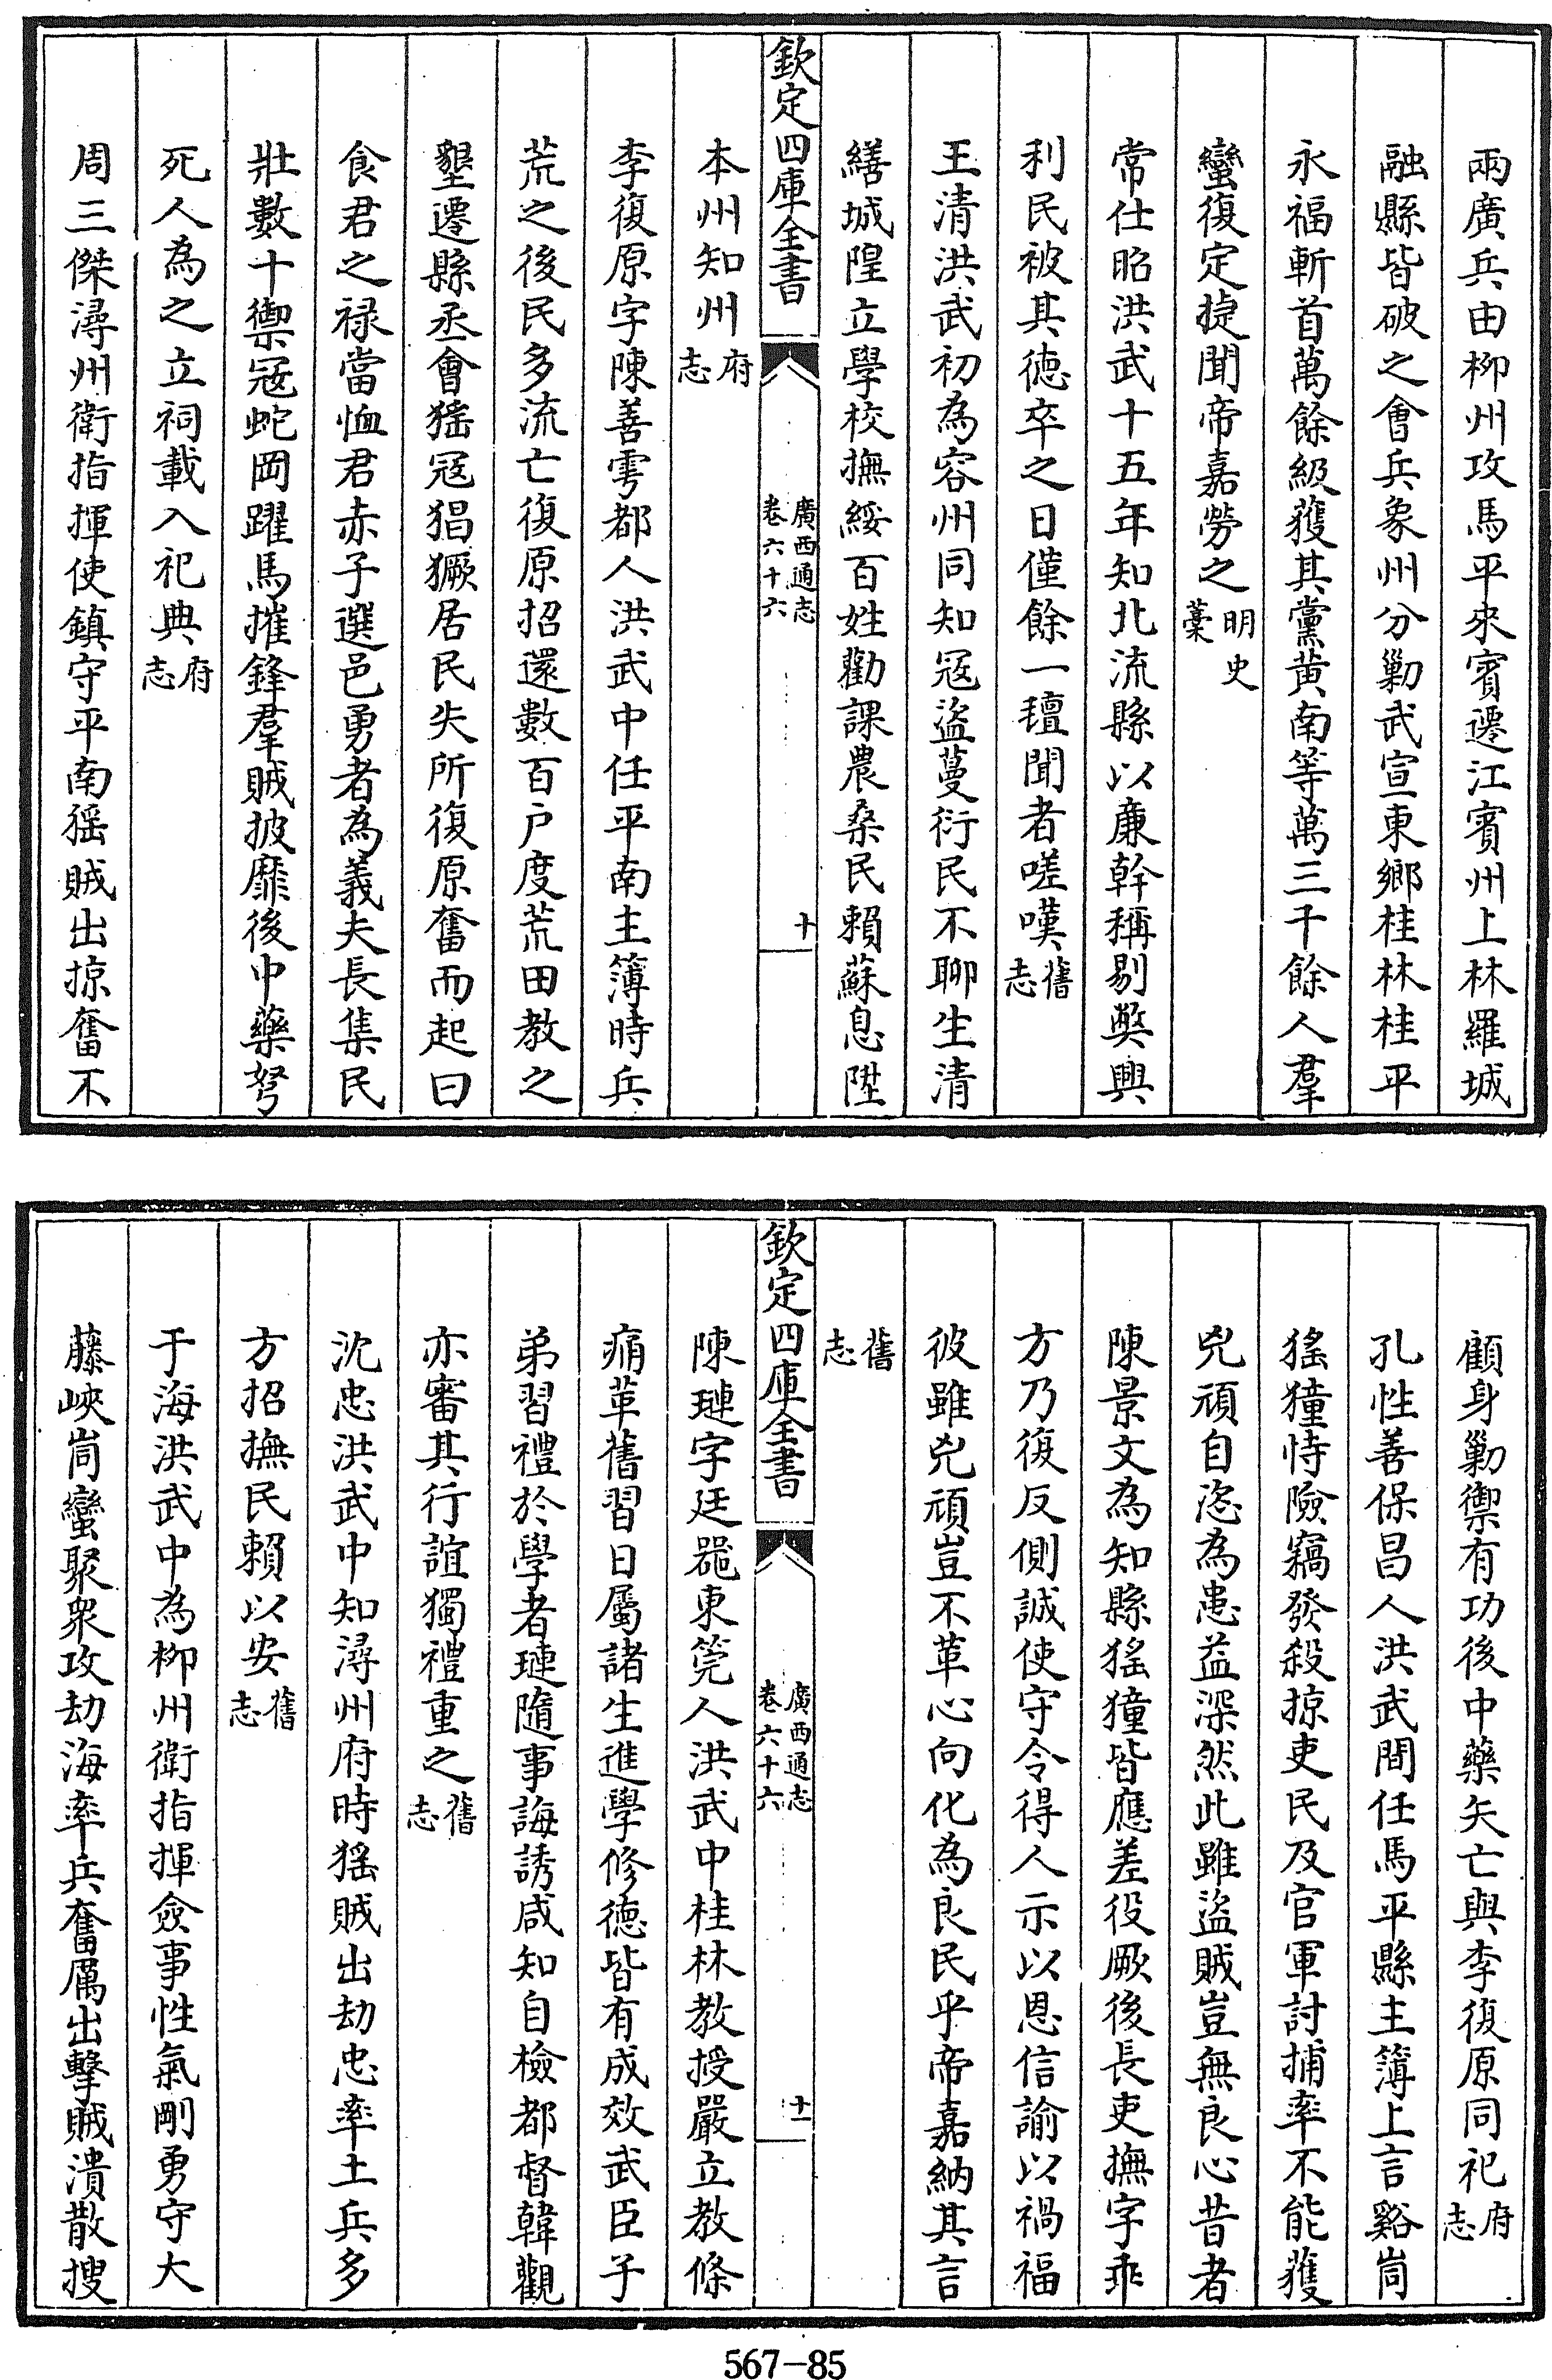 兩廣兵由栁州攻馬平來賓遷江賓州上林羅城
融縣皆破之會兵象州分勦武宣東鄉桂林桂平
永福斬首萬餘級獲其黨黄南等萬三千餘人羣
蠻復定捷聞帝嘉勞之明史藁
常仕昭洪武十五年知北流縣以亷幹稱剔獘興
利民被其徳卒之日僅餘一氊聞者嗟嘆舊志
王清洪武初為容州同知冦盜蔓衍民不聊生清
繕城隍立學校撫綏百姓勸課農桑民賴蘇息陞
欽定四庫全書
廣西通志
卷六十六
十
本州知州府志
李復原字陳善雩都人洪武中任平南主簿時兵
荒之後民多流亡復原招還數百户度荒田教之
墾遷縣丞會猺冦猖獗居民失所復原奮而起曰
食君之禄當恤君赤子選邑勇者為義夫長集民
壯數十禦冦蛇岡躍馬摧鋒羣賊披靡後中藥弩
死人為之立祠載入祀典府志
周三傑潯州衛指揮使鎮守平南猺賊出掠奮不
顧身勦禦有功後中藥矢亡與李復原同祀府志
孔性善保昌人洪武間任馬平縣主簿上言谿峝
猺獞恃險竊發殺掠吏民及官軍討捕率不能獲
兇頑自恣為患益深然此雖盜賊豈無良心昔者
陳景文為知縣猺獞皆應差役厥後長吏撫字乖
方乃復反側誠使守令得人示以恩信諭以禍福
彼雖兇頑豈不革心向化為良民乎帝嘉納其言
舊志
欽定四庫全書
廣西通志
卷六十六
十一
陳璉字廷器東筦人洪武中桂林教授嚴立教條
痛革舊習日屬諸生進學修徳皆有成效武臣子
弟習禮於學者璉隨事誨誘咸知自檢都督韓觀
亦審其行誼獨禮重之舊志
沈忠洪武中知潯州府時猺賊出劫忠率土兵多
方招撫民賴以安舊志
于海洪武中為栁州衛指揮僉事性氣剛勇守大
藤峽峝蠻聚衆攻劫海率兵奮厲出擊賊潰散搜
567-85